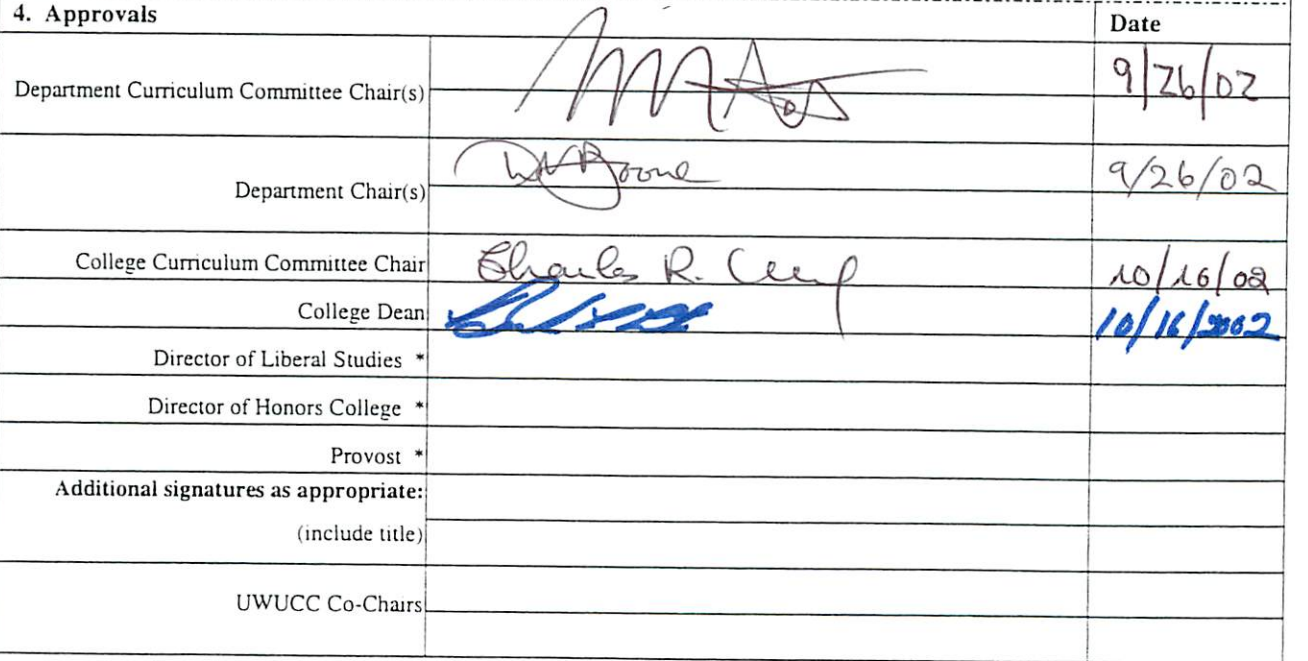 4. Approvals Date
Department Curriculum Committee Chair(s) 9/26/02
Department Chair(s) 9/26/02
College Curriculum Committee Chair Charles R. 10/16/02
College Dean 10/16/2002
Director of Liberal Studies *
Director of Honors College *
Provost *
Additional signatures as appropriate:
(include title)
UWUCC Co-Chairs